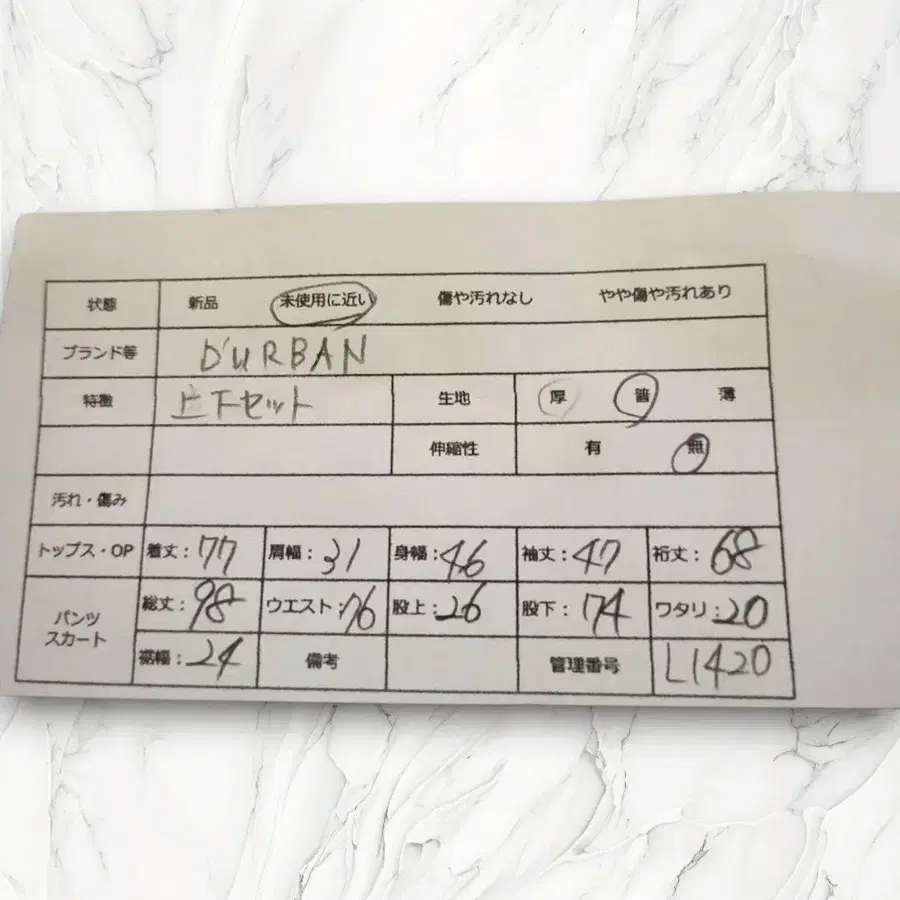 状態 新品 未使用に近い 傷や汚れなし やや傷や汚れあり
ブランド等 D'URBAN
特徴 上下セット 生地 厚 普 薄
伸縮性 有 無
汚れ・傷み
トップス・OP 着丈:77 肩幅:31 身幅:46 袖丈:47 裄丈:68
パンツ
スカート
総丈:98 ウエスト:76 股上:26 股下:74 ワタリ:20
裾幅:24 備考 管理番号 L1420